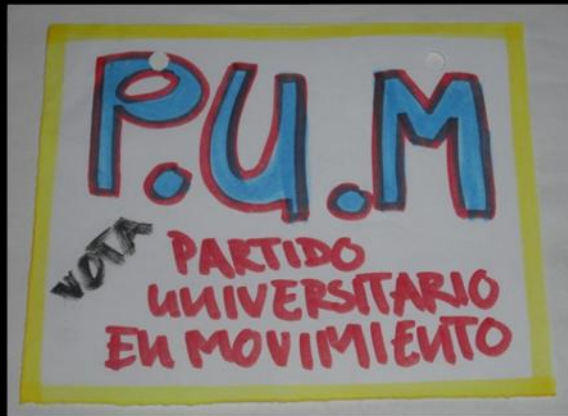 P.U.M
VOTA
PARTIDO
UNIVERSITARIO
EN MOVIMIENTO